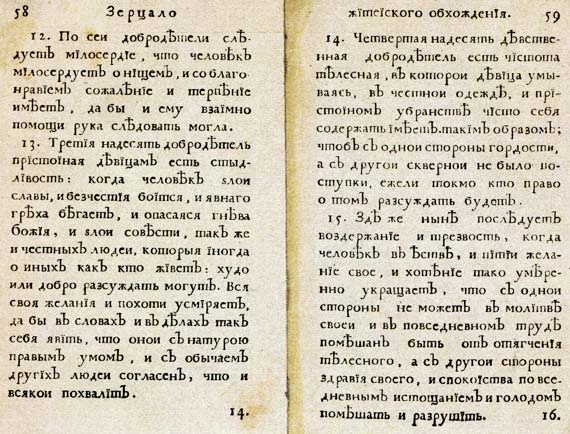 58 Зерцало
12. По сеи добродѣтели слѣ-
дуетъ мїлосердїе, что человѣкъ
мїлосердуетъ о нїщемъ, и со благо-
нравїемъ сожалѣнїе и терпѣнїе
имѣетъ, да бы и ему взаїмно
помощи рука слѣдовать могла.
13. Третїя надесять добродѣтель
прїстоїная дѣвїцамъ есть стыд-
лївость: когда человѣкъ ѕлои
славы, и безчестїя боїтся, и явнаго
грѣха бѣгаетъ, и опасаяся гнѣва
божїя, и ѕлои совѣсти, такъ же
и честныхъ людеи, которыя їногда
о иныхъ какъ кто жїветъ: худо
или добро разсуждать могутъ. Вся
своя желанїя и похоти усмїряетъ,
да бы въ словахъ и въ дѣлахъ такъ
себя явїть, что онои съ натурою
правымъ умомъ, и съ обычаемъ
другїхъ людеи согласенъ, что и
всякои похвалїтъ.
14.
жїтеїского обхожденїя. 59
14. Четвертая надесять дѣвстве-
нная добродѣтель есть чїстота
тѣлесная, въ которои дѣвїца умы-
ваясь, въ честнои одеждѣ, и прї-
стоїномъ убранствѣ чїсто себя
содержать їмѣетъ. такїмъ образомъ;
чтобъ съ однои стороны гордости,
а съ другои сквернои не было по-
ступки, ежели токмо кто право
о томъ разсуждать будетъ.
15. Здѣ же нынѣ послѣдуетъ
воздержанїе и трезвость, когда
человѣкъ въ ѣствѣ, и пїтїи жела-
нїе свое, и хотѣнїе тако умѣре-
нно укращаетъ, что съ однои
стороны не можетъ въ молїтвѣ
своеи и въ повседневномъ трудѣ
помѣшанъ быть отъ отягченїя
тѣлесного, а съ другои стороны
здравїя своего, и спокоїства по все-
дневнымъ истощанїемъ и голодомъ
помѣшать и разрушїть. 16.